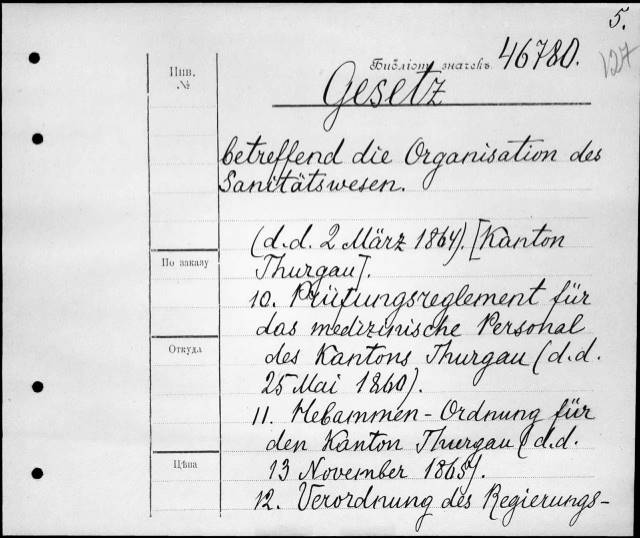 5.
Библіот. значекъ 46780.
127
Инв.
№
Gesetz
betreffend die Organisation des
Sanitätswesen.
(d.d. 2 März 1864). [Kanton
Thurgau].
По заказу
10. Prüfungsreglement für
das medizinische Personal
Откуда
des Kantons Thurgau (d.d.
25 Mai 1860).
11. Hebammen-Ordnung für
den Kanton Thurgau (d.d.
Цѣна
13 November 1865).
12. Verordnung des Regierungs-